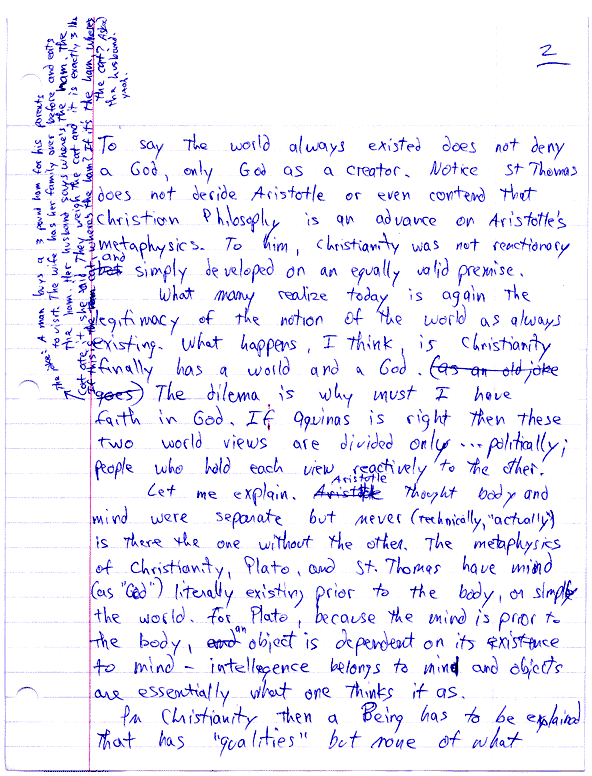 2
joke: A man buys a 3 pound ham for his parents
to visit. The wife has her family over before and eats
the ham. Her husband says where's the ham. The
cat ate it she said. They weigh the cat and it is exactly 3 lbs
If this is the ham cat, where's the ham? If it's the ham, where's
the cat? Asked
the husband.
yeah.
To say the world always existed does not deny
a God, only God as a creator. Notice St Thomas
does not deride Aristotle or even contend that
Christian Philosophy is an advance on Aristotle's
metaphysics. To him, Christianity was not reactionary
but and simply developed on an equally valid premise.
What many realize today is again the
legitimacy of the notion of the world as always
existing. What happens, I think, is Christianity
finally has a world and a God. (as an old joke
goes) The dilema is why must I have
faith in God. If Aquinas is right then these
two world views are divided only ... politically;
people who hold each view reactively to the other.
Let me explain. Aristotle Aristotle thought body and
mind were separate but never (technically, "actually")
is there the one without the other. The metaphysics
of Christianity, Plato, and St. Thomas have mind
(as "God") literally existing prior to the body, or simply
the world. For Plato, because the mind is prior to
the body, and an object is dependent on its existence
to mind - intellegence belongs to mind and objects
are essentially what one thinks it as.
In Christianity then a Being has to be explained
that has "qualities" but none of what